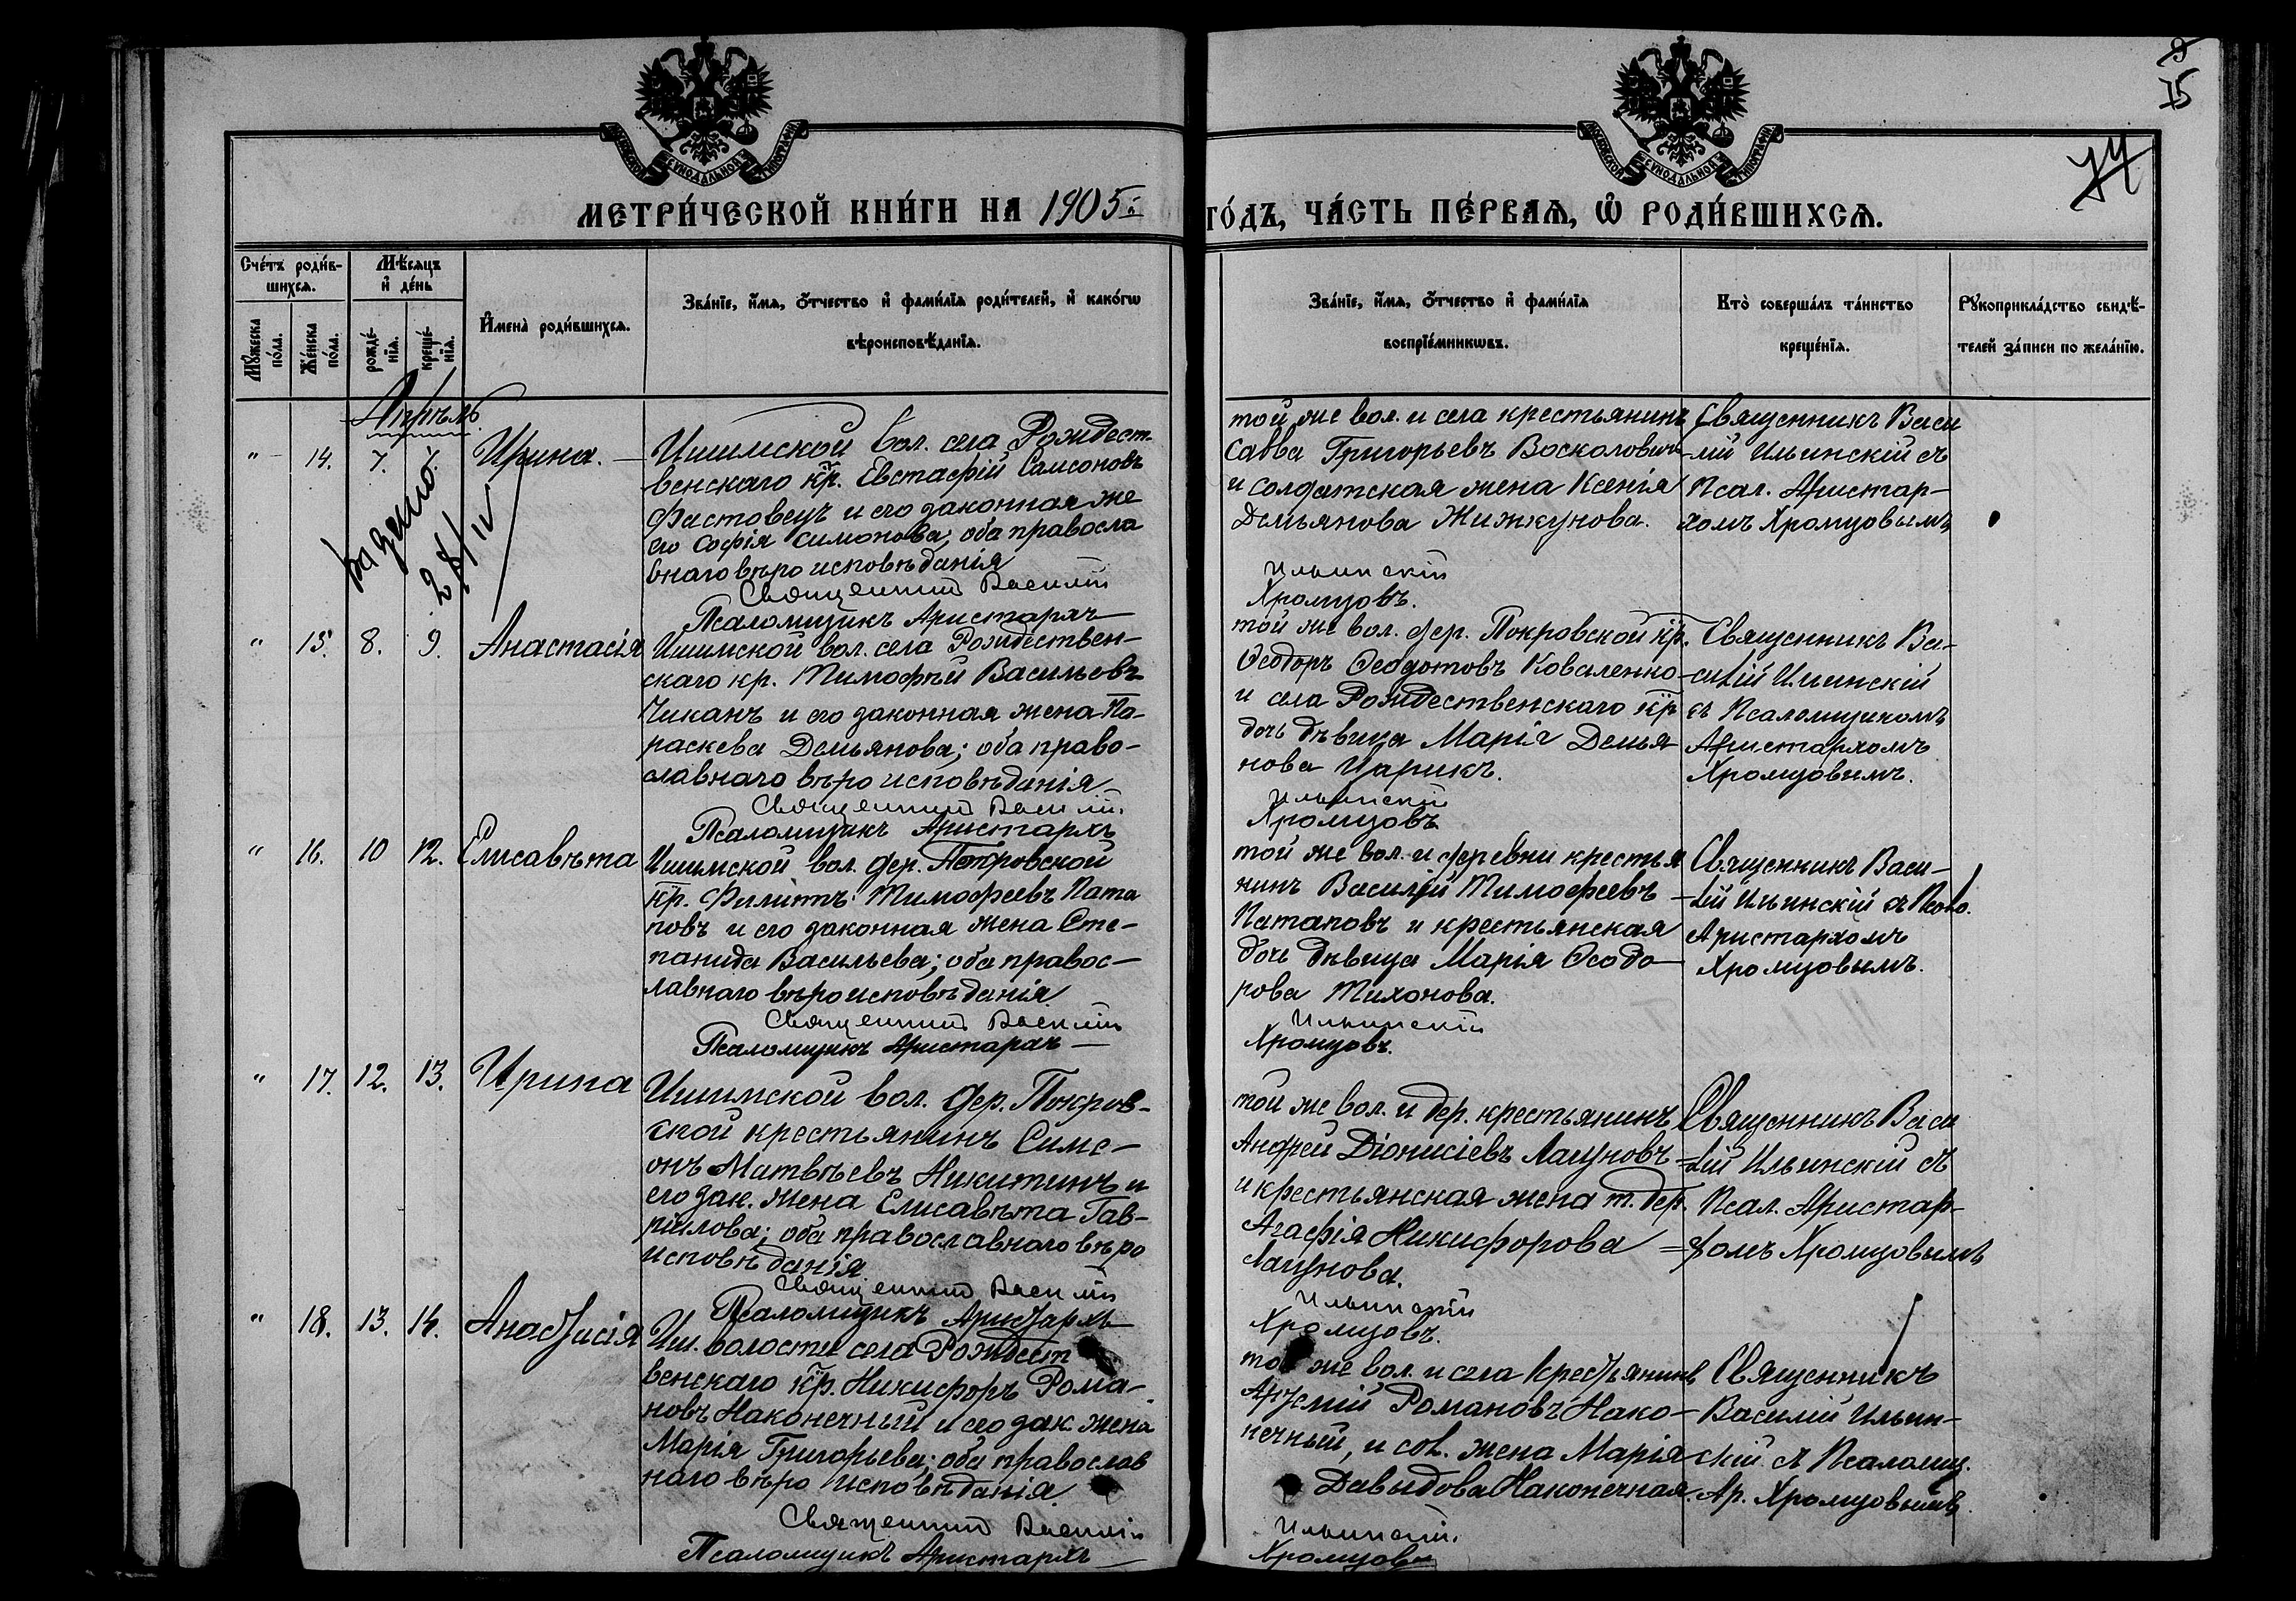 9
15
74
МОСКОВСКОЙ СѴНОДАЛЬНОЙ ТИПОГРАФІИ
МОСКОВСКОЙ СѴНОДАЛЬНОЙ ТИПОГРАФІИ
МЕТРИ́ЧЕСКОЙ КНИ́ГИ НА 1905й
ГО́ДЪ, ЧА́СТЬ ПЕ́РВАѦ, Ѡ҆ РОДИ́ВШИХСѦ.
Сче́тъ роди́в-
шихсѧ.
Мꙋ́жеска по́ла.
Же́нска по́ла.
Мѣ́сѧцъ
и҆ де́нь
рожде́-
нїѧ.
креще́-
нїѧ.
И҆мена̀ роди́вшихсѧ.
Зва́нїе, и҆́мѧ, ѻ҆́тчество и҆ фами́лїѧ роди́телей, и҆ како́гѡ
вѣроисповѣ́данїѧ.
Зва́нїе, и҆́мѧ, ѻ҆́тчество и҆ фами́лїѧ
воспрїе́мникѡвъ.
Кто̀ соверша́лъ та́инство
креще́нїѧ.
Рꙋкоприкла́дство свидѣ́-
телей за́писи по жела́нїю.
Апрѣль
" 14. 7. Ирина.
28/IV
Ишимской вол. села Рождест-
венскаго кр. Евстафій Самсоновъ
Фастовецъ и его законная же
его Софія Симонова; оба правосла
внаго вѣроисповѣданія
Священникъ Василій
Псаломщикъ Аристархъ
той же вол. и села крестьянинъ
Савва Григорьевъ
и солдатская жена Ксенія
Демьянова Жижкунова.
Ильинскій
Хромцовъ.
Священникъ Васи
-лій Ильинскій съ
Псал. Аристар-
хомъ Хромцовымъ
" 15. 8. 9. Анастасія
Ишимской вол. села Рождествен-
скаго кр. Тимофѣй Васильевъ
Чиканъ и его законная жена Па-
раскева Демьянова; оба право-
славнаго вѣроисповѣданія
Священникъ Василій
Псаломщикъ Аристархъ
той же вол. дер. Покровской кр.
Ѳеодоръ Ѳеодотовъ Коваленко
и села Рождественскаго кр
дочь дѣвица Марія Демья
нова Царикъ.
Ильинскій
Хромцовъ
Священникъ Ва-
силій Ильинскій
съ Псаломщикомъ
Аристархомъ
Хромцовымъ.
" 16. 10 12. Елисавѣта
Ишимской вол. дер. Петровской
кр. Филиппъ Тимофеевъ Пата
повъ и его законная жена Сте-
панида Васильева; оба правос-
лавнаго вѣроисповѣданія.
Священникъ Василій
Псаломщикъ Аристархъ
той же вол. и деревни крестья
нинъ Василій Тимофеевъ
Патаповъ и крестьянская
дочь дѣвица Марія Ѳеодо-
рова Тихонова.
Ильинскій
Хромцовъ.
Священникъ Васи-
-лій Ильинскій съ
Аристархомъ
Хромцовымъ.
" 17. 12. 13. Ирина
Ишимской вол. дер. Покров-
ской крестьянинъ Симе-
онъ Матвѣевъ Никитинъ и
его зак. жена Елисавѣта Гав-
рiилова; оба православнаго вѣро
исповѣданія
Священникъ Василій
Псаломщикъ Аристархъ
той же вол. и дер. крестьянинъ
Андрей Діонисіевъ Лагуновъ
и крестьянская жена т. дер.
Агафія Никифорова
Лагунова.
Ильинскій
Хромцовъ.
Священникъ Васи
=лій Ильинскій съ
Псал. Аристар-
=хомъ Хромцовымъ
" 18. 13. 14. Анастасія
Иш. волости села Рождест
венскаго кр. Никифоръ Рома-
новъ Наконечный и его зак. жена
Марія Григорьева; оба православ
наго вѣроисповѣданія.
Священникъ Василій
Псаломщикъ Аристархъ
той же вол. и села крестьянинъ
Артемій Романовъ Нако-
нечный, и сол. жена Марія
Давыдова Наконечная.
Ильинскій.
Хромцовъ
Священникъ
Василій Ильин-
скій съ Псаломщ.
Ар. Хромцовымъ.